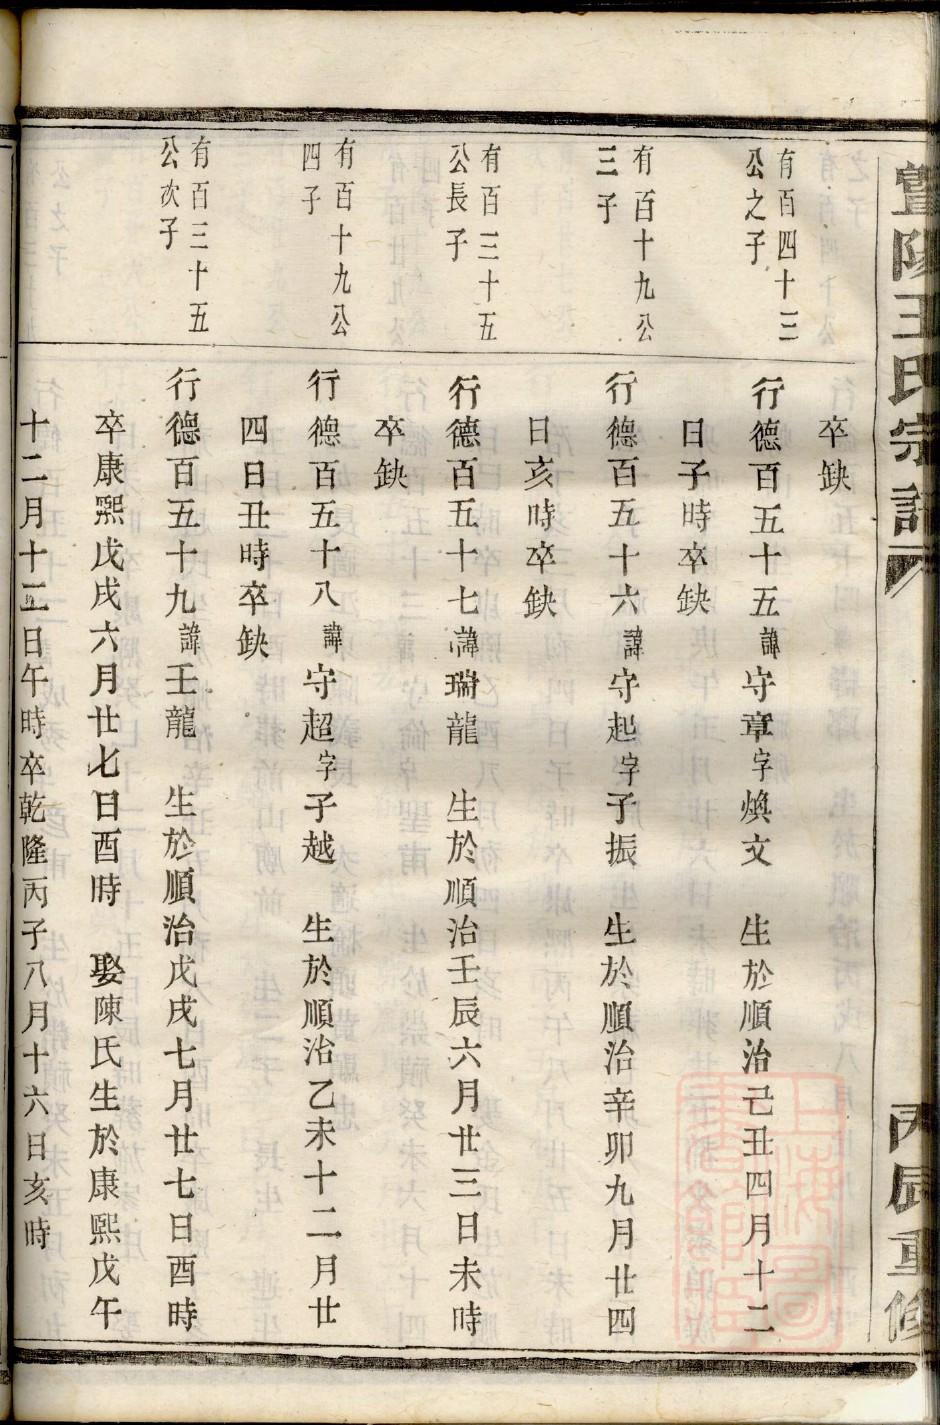 暨陽王氏宗譜
丙辰重修
卒缺
有百四十三
公之子
行德百五十五諱守章字煥文 生於順治己丑四月十二
日子時卒缺
有百十九公
三子
行德百五十六諱守起字子振 生於順治辛卯九月廿四
日亥時卒缺
有百三十五
公長子
行德百五十七諱瑞龍 生於順治壬辰六月廿三日未時
卒缺
有百十九公
四子
行德百五十八諱守超字子越 生於順治乙未十二月廿
四日丑時卒缺
有百三十五
公次子
行德百五十九諱壬龍 生於順治戊戌七月廿七日酉時
卒康熙戊戌六月廿七日酉時 娶陳氏生於康熙戊午
十二月十五日午時卒乾隆丙子八月十六日亥時